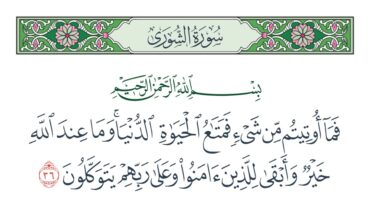 سُورَةُ الشُّورَىٰ
بِسْمِ اللَّهِ الرَّحْمَٰنِ الرَّحِيمِ
فَمَا أُوتِيتُم مِّن شَيْءٍ فَمَتَاعُ الْحَيَوٰةِ الدُّنْيَا ۚ وَمَا عِندَ اللَّهِ
خَيْرٌ وَأَبْقَىٰ لِلَّذِينَ ءَامَنُوا۟ وَعَلَىٰ رَبِّهِمْ يَتَوَكَّلُونَ ٣٦